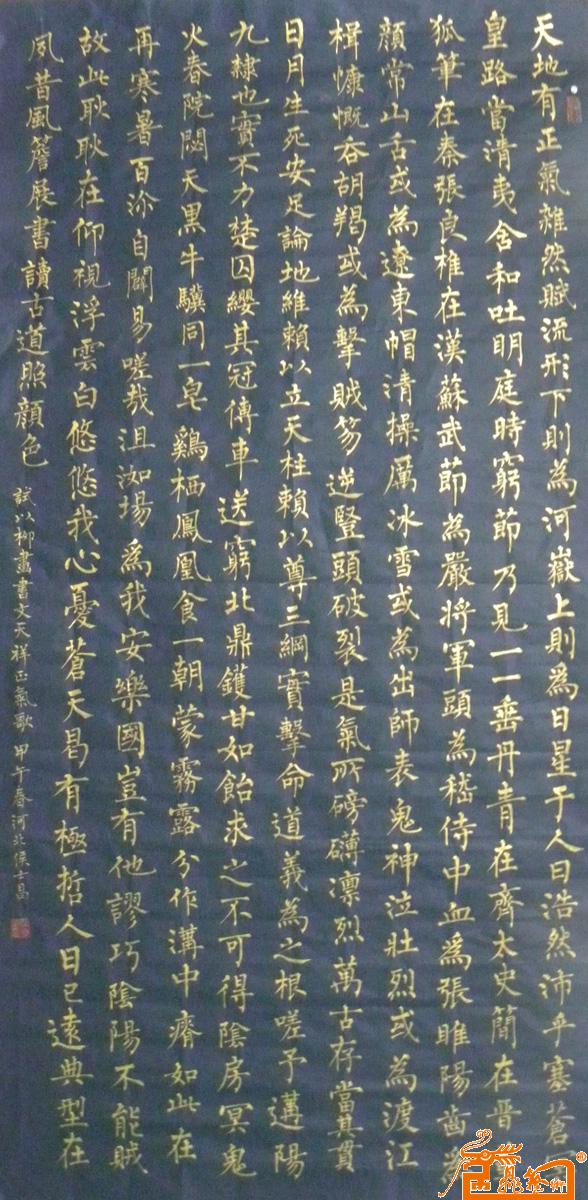 天地有正氣雜然賦流形下則為河嶽上則為日星于人曰浩然沛乎塞蒼
皇路當清夷含和吐明庭時窮節乃見一一垂丹青在齊太史簡在晉
狐筆在秦張良椎在漢蘇武節為嚴將軍頭為嵇侍中血為張睢陽齒
顏常山舌或為遼東帽清操厲冰雪或為出師表鬼神泣壯烈或為渡江
楫慷慨吞胡羯或為擊賊笏逆豎頭破裂是氣所磅礴凛烈萬古存當其貫
日月生死安足論地維賴以立天柱賴以尊三綱實擊命道義為之根嗟予遘陽
九隸也實不力楚囚纓其冠傳車送窮北鼎鑊甘如飴求之不可得陰房冥鬼
火春院閟天黑牛驥同一皂鷄栖鳳凰食一朝蒙霧露分作溝中瘠如此在
再寒暑百沴自闢易嗟哉沮洳場為我安樂國豈有他謬巧陰陽不能賊
故此耿耿在仰視浮雲白悠悠我心憂蒼天曷有極哲人日已遠典型在
夙昔風簷展書讀古道照顏色
試以柳畫書文天祥正氣歌 甲午春河北侯士昌